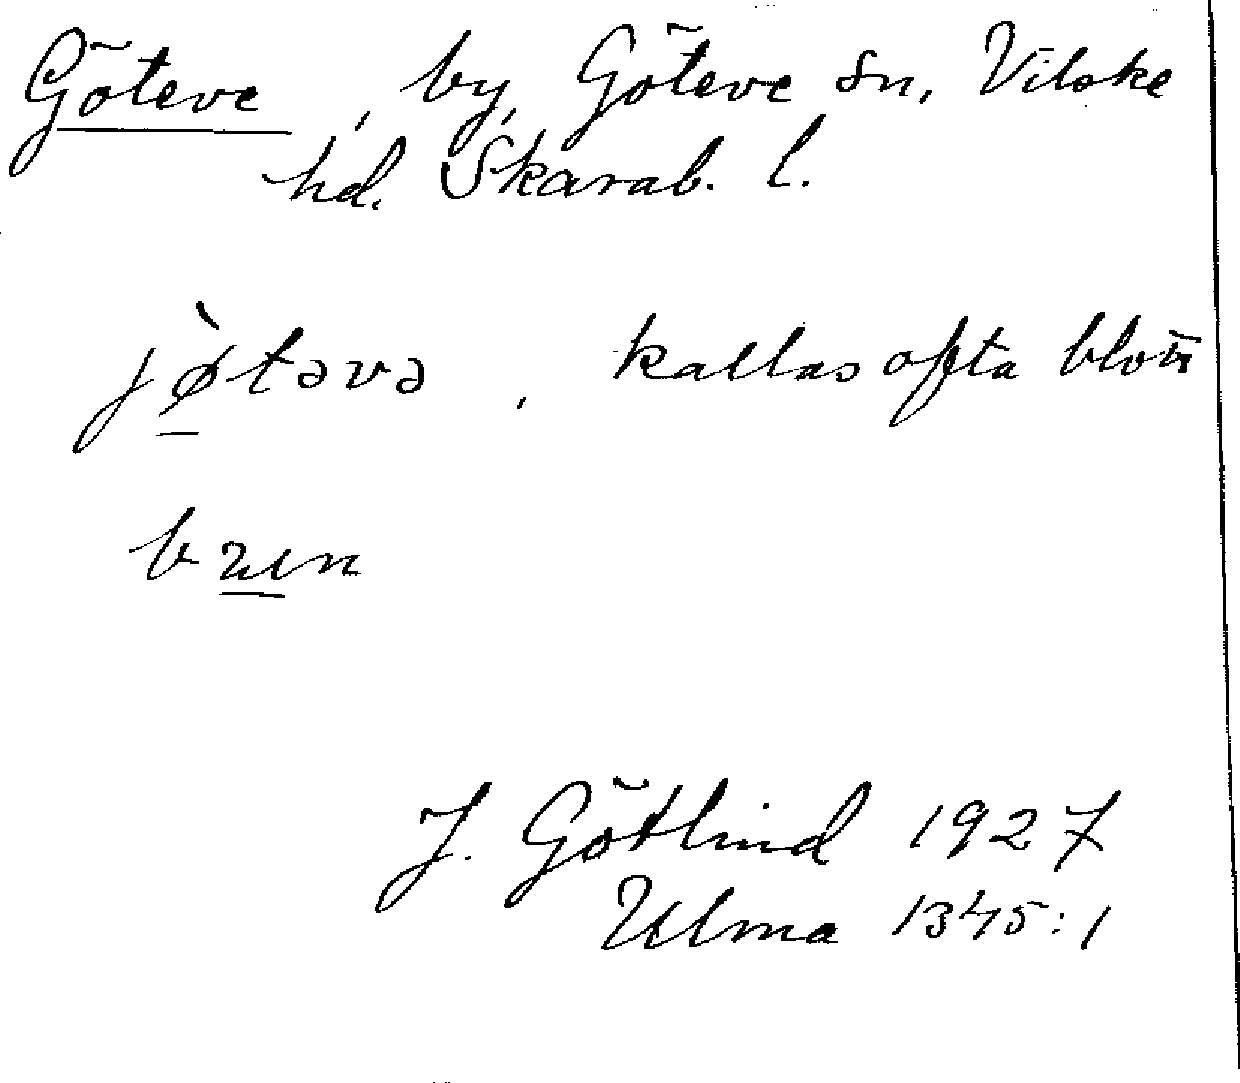 Göteve, by, Göteve sn, Vilske
hd. Skarab. l.
jø̀təvə, kallas ofta blott
J. Götlind 1927
Ulma 1345:1